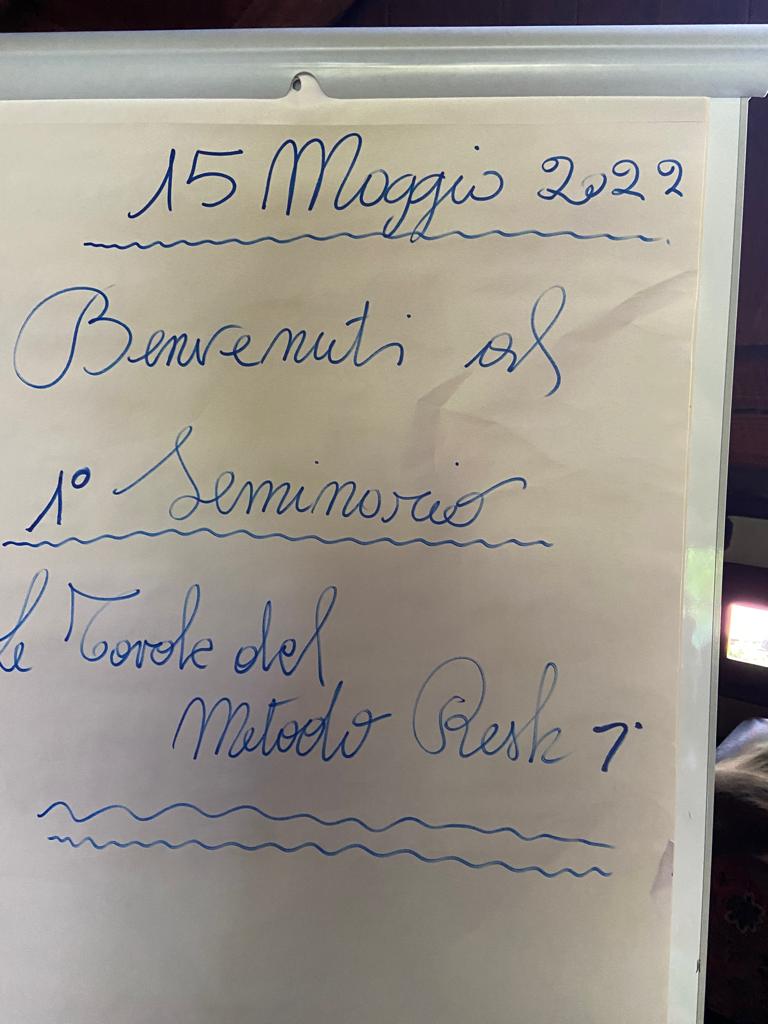 15 Maggio 2022
Benvenuti al
1° Seminario
Le Tavole del
Metodo Resh